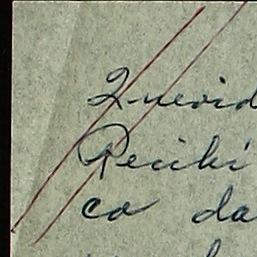 Querid
Recibi
co da